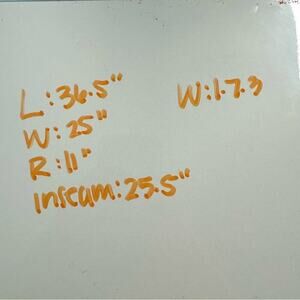 L:36.5"
W:25"
R:11"
inseam:25.5"
W:1.7.3